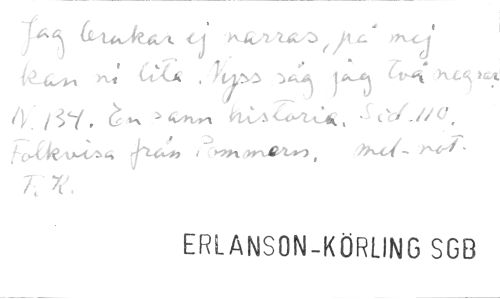 Jag brukar ej narras, på mej
kan ni lita. Nyss såg jag två negrar
N. 134. En sann historia. Sid. 110.
Folkvisa från Pommern. mel-not.
F. K.
ERLANSON-KÖRLING SGB